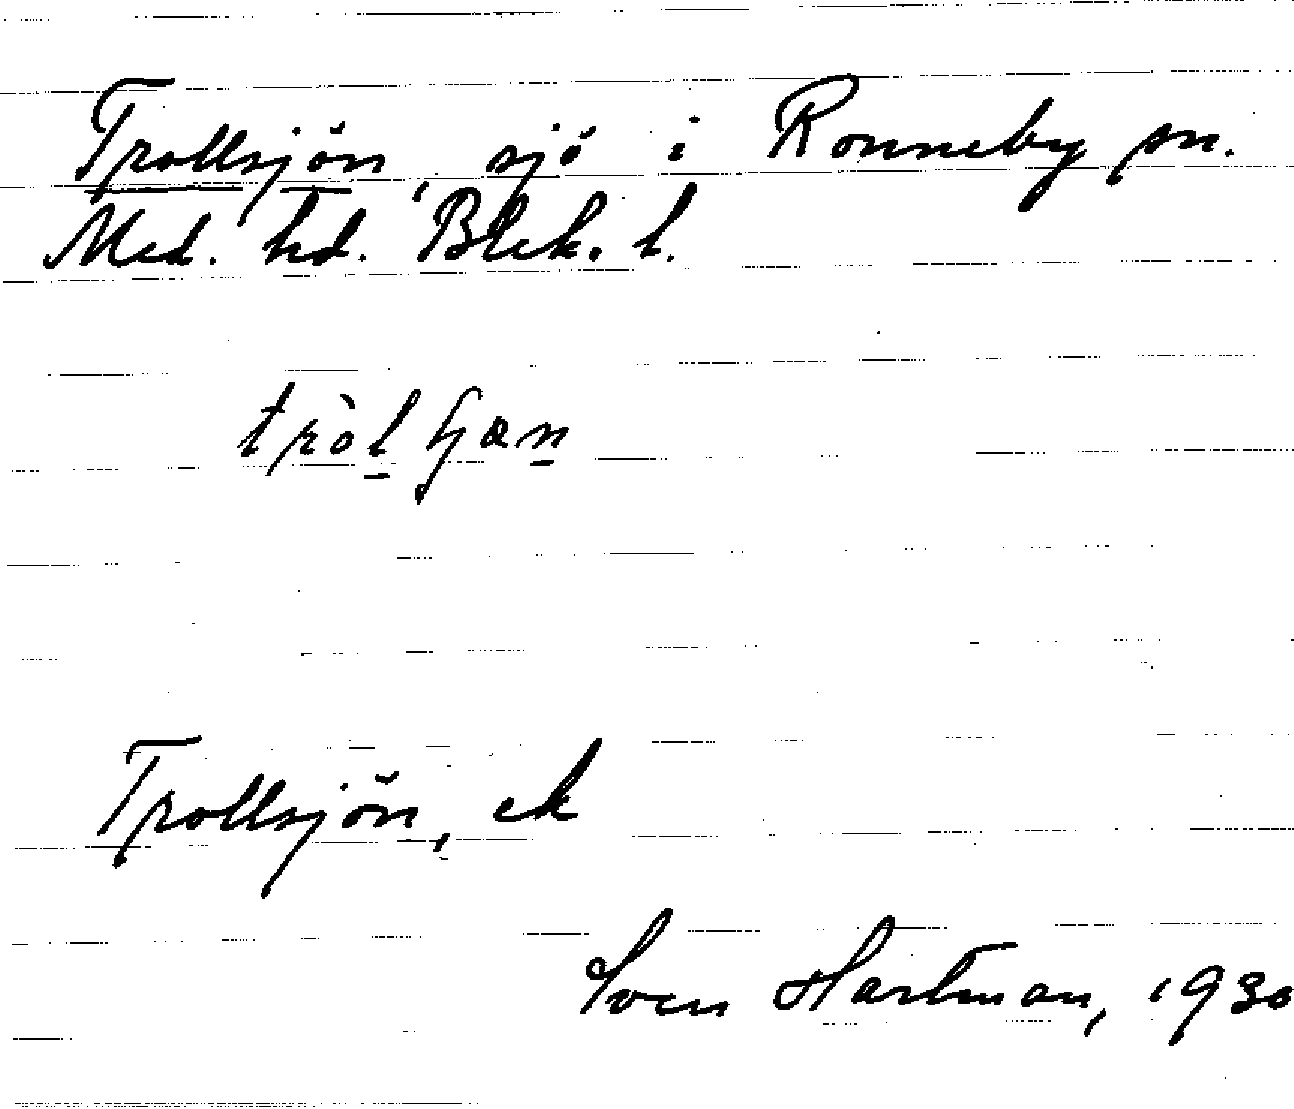 Trollsjön, sjö i Ronneby sn.
Med. hd. Blek. l.
Trollsjön, ek
Sven Hartman, 1930